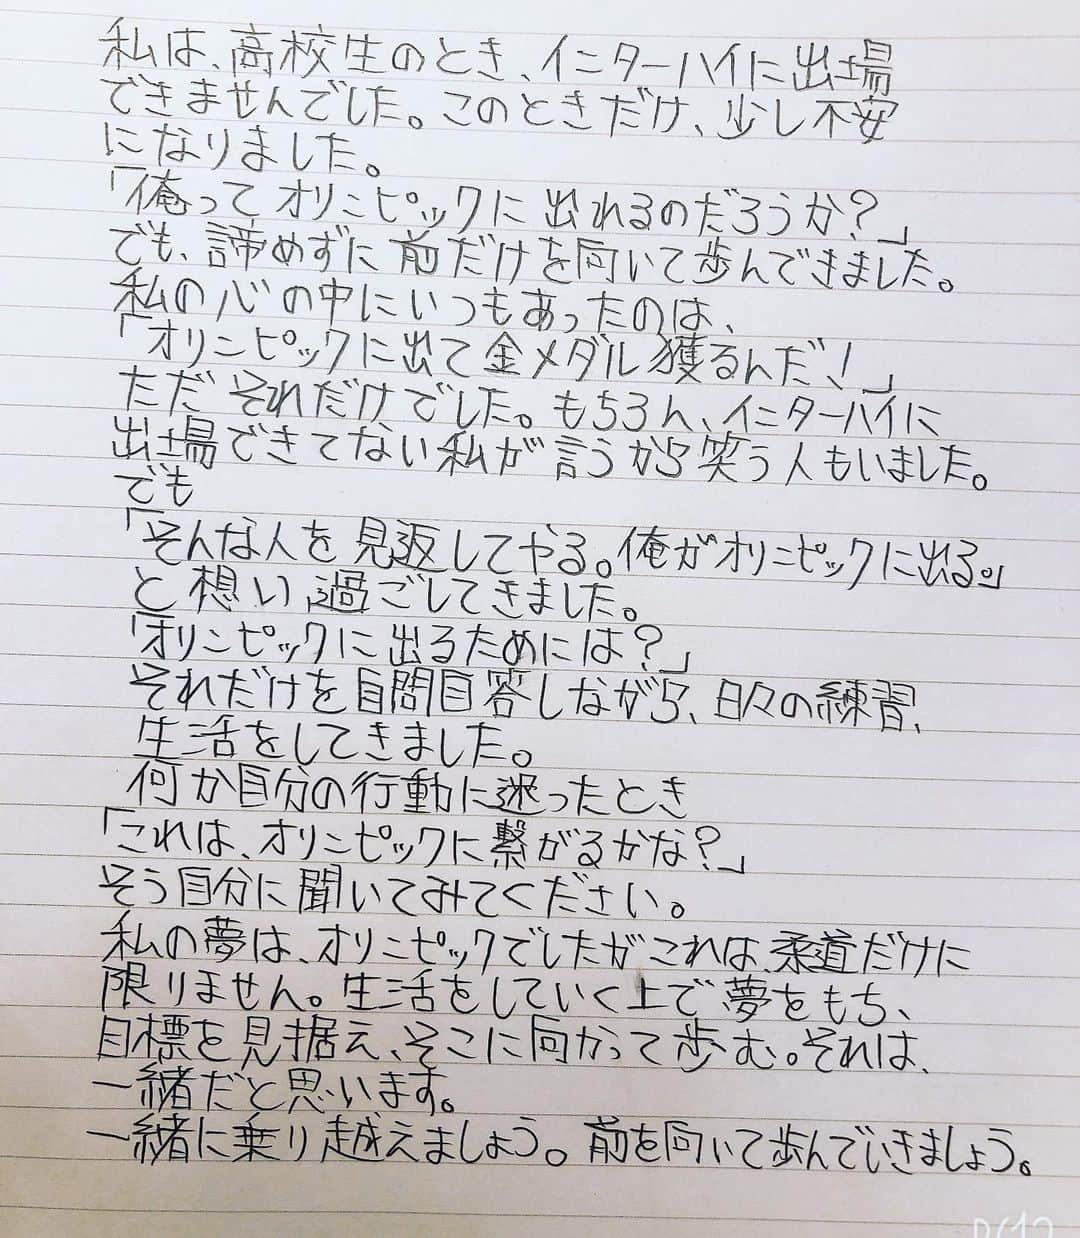 私は、高校生のとき、インターハイに出場
できませんでした。このときだけ、少し不安
になりました。
「俺ってオリンピックに出れるのだろうか?」
でも、諦めずに前だけを向いて歩んできました。
私の心の中にいつもあったのは、
「オリンピックに出て金メダル獲るんだ!」
ただそれだけでした。もちろん、インターハイに
出場できてない私が言うから笑う人もいました。
でも
「そんな人を見返してやる。俺がオリンピックに出る。」
と想い過ごしてきました。
「オリンピックに出るためには?」
それだけを自問自答しながら、日々の練習、
生活をしてきました。
何か自分の行動に迷ったとき
「これは、オリンピックに繋がるかな?」
そう自分に聞いてみてください。
私の夢は、オリンピックでしたがこれは、柔道だけに
限りません。生活をしていく上で夢をもち、
目標を見据え、そこに向かって歩む。それは、
一緒だと思います。
一緒に乗り越えましょう。前を向いて歩んでいきましょう。